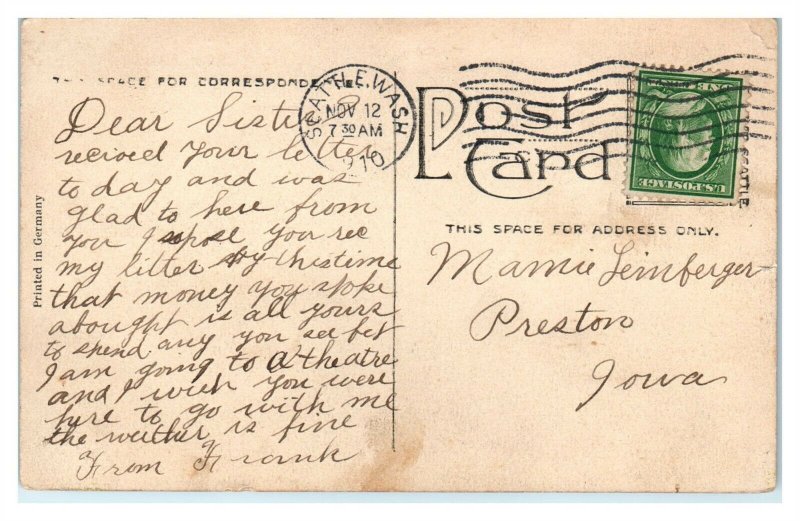 THIS SPACE FOR CORRESPONDENCE
SEATTLE, WASH.
NOV 12
7 30 AM
1910
Post
Card
U.S. POSTAGE
SEATTLE.
THIS SPACE FOR ADDRESS ONLY.
Printed in Germany
Dear Sister
recived your letter
to day and was
glad to here from
you I sopose your rec
my litter by thistime
that money you spoke
abought is all yours
to spend any you see bet
I am going to a theatre
and I wish you were
here to go with me
the weither is fine
From Frank
Mamie Leinberger
Preston
Iowa